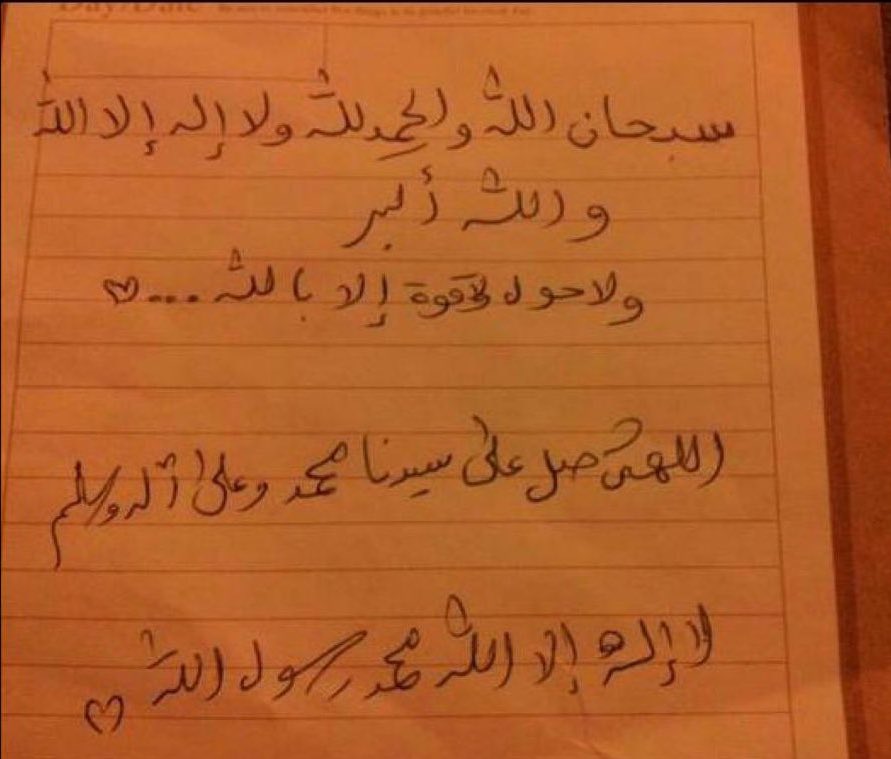 Day/Date
سبحان الله والحمد لله ولا إله إلا الله
والله أكبر
ولا حول لاقوة إلا بالله ...♡
اللهم صل على سيدنا محمد وعلى آله وسلم
لا إله إلا الله محمد رسول الله ♡